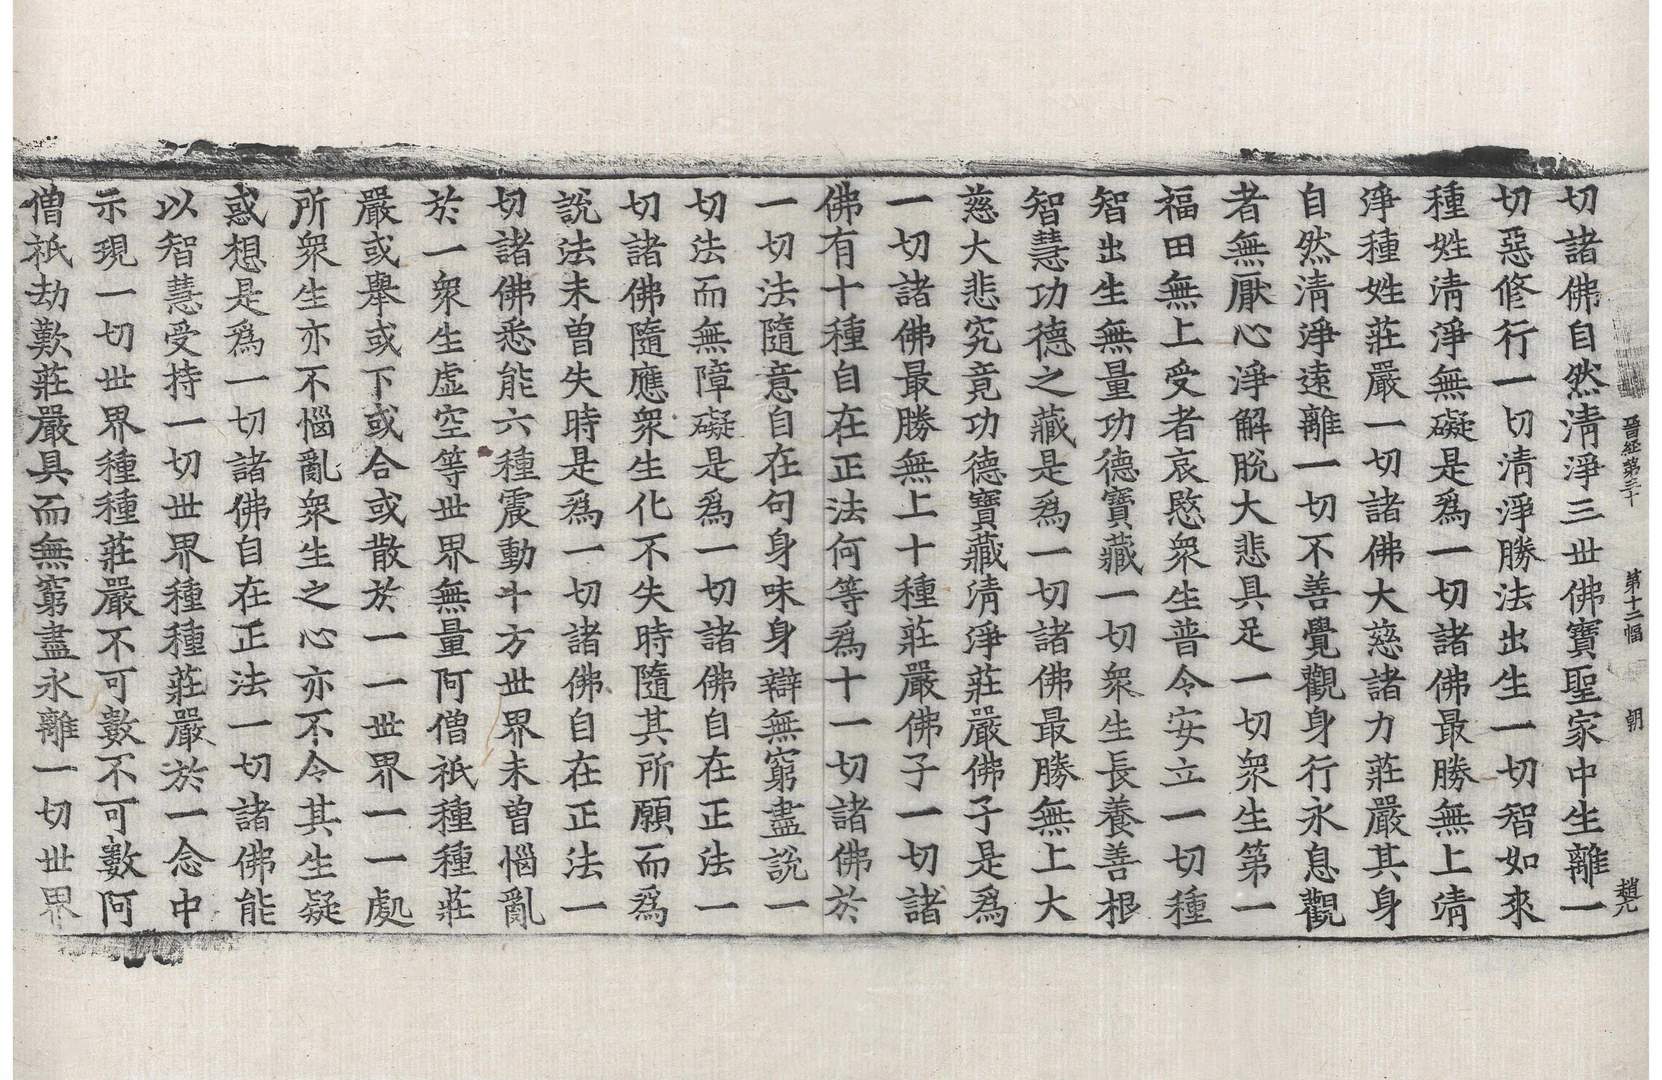 晉經第三十 第十二幅 朝 趙九
切諸佛自然清淨三世佛寶聖家中生離一
切惡修行一切清淨勝法出生一切智如來
種姓清淨無礙是爲一切諸佛最勝無上清
淨種姓莊嚴一切諸佛大慈諸力莊嚴其身
自然清淨遠離一切不善覺觀身行永息觀
者無厭心淨解脫大悲具足一切衆生第一
福田無上受者哀愍衆生普令安立一切種
智出生無量功德寶藏一切衆生長養善根
智慧功德之藏是爲一切諸佛最勝無上大
慈大悲究竟功德寶藏清淨莊嚴佛子是爲
一切諸佛最勝無上十種莊嚴佛子一切諸
佛有十種自在正法何等爲十一切諸佛於
一切法隨意自在句身味身辯無窮盡說一
切法而無障礙是爲一切諸佛自在正法一
切諸佛隨應衆生化不失時隨其所願而爲
說法未曾失時是爲一切諸佛自在正法一
切諸佛悉能六種震動十方世界未曾惱亂
於一衆生虛空等世界無量阿僧祇種種莊
嚴或舉或下或合或散於一一世界一一處
所衆生亦不惱亂衆生之心亦不令其生疑
惑想是爲一切諸佛自在正法一切諸佛能
以智慧受持一切世界種種莊嚴於一念中
示現一切世界種種莊嚴不可數不可數阿
僧祇劫歎莊嚴具而無窮盡永離一切世界